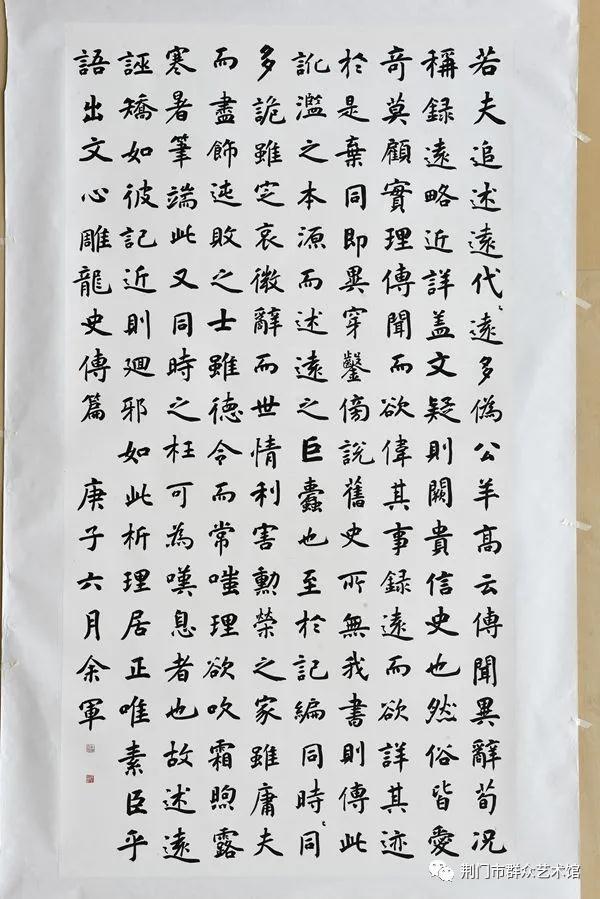 若夫追述遠代〻遠多偽公羊高云傳聞異辭荀況
稱録遠略近詳盖文疑則闕貴信史也然俗皆愛
奇莫顧實理傳聞而欲偉其事録遠而欲詳其迹
於是棄同即異穿鑿傍說舊史所無我書則傳此
訛濫之本源而述遠之巨蠹也至於記編同時〻同
多詭雖定哀微辭而世情利害勳榮之家雖庸夫
而盡飾迍敗之士雖德令而常嗤理欲吹霜煦露
寒暑筆端此又同時之枉可為嘆息者也故述遠
誣矯如彼記近則廻邪如此析理居正唯素臣乎
語出文心雕龍史傳篇 庚子六月余軍
荆门市群众艺术馆